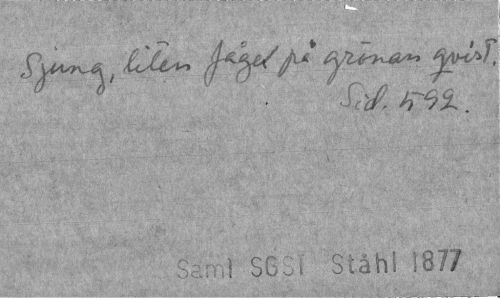 Sjung, liten fågel på grönan qvist.
Sid. 592.
Saml SGSI Ståhl 1877